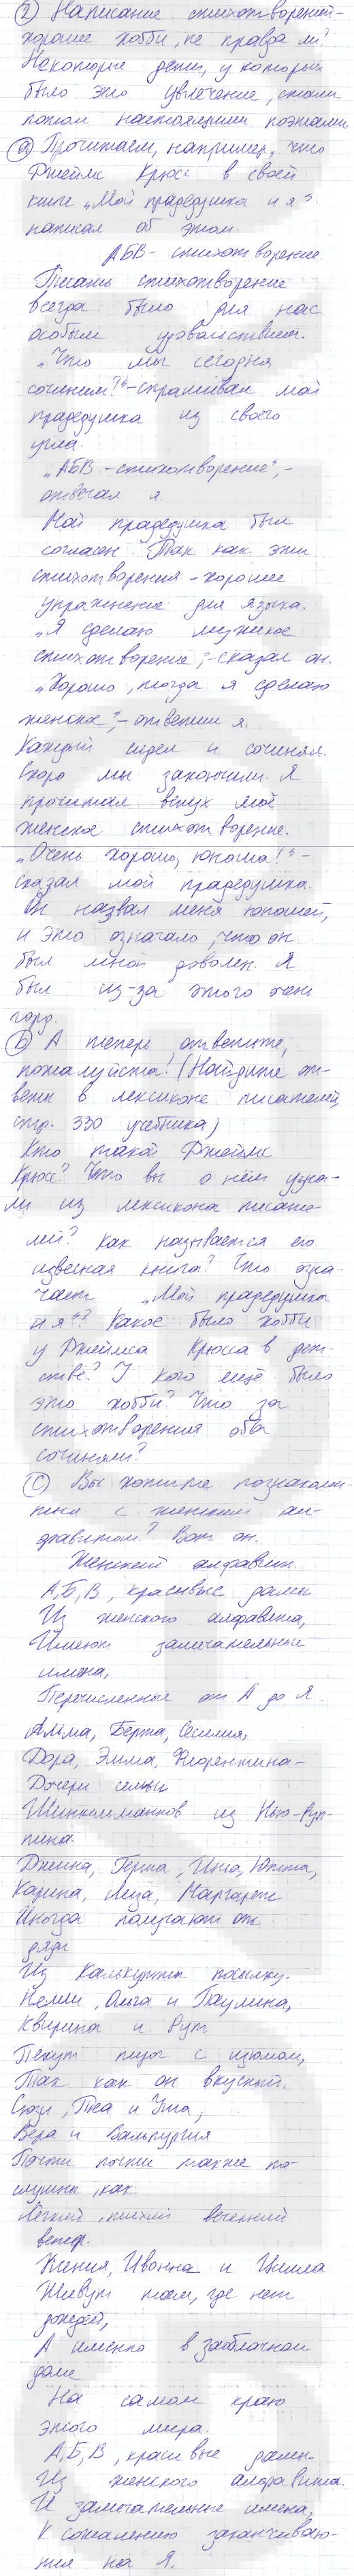 2) Написание стихотворений-
хорошее хобби, не правда ли?
Некоторые дети, у которых
было это увлечение, стали
потом настоящими поэтами
a) Прочитаем, например, что
Джеймс Крюсс в своей
книге „Мой прадедушка и я"
написал об этом.
АБВ - стихотворение
Писать стихотворение
всегда было для нас
особым удовольствием.
„Что мы сегодня
сочиним?"-спрашивал мой
прадедушка из своего
угла.
„АБВ-стихотворение",-
отвечал я.
Мой прадедушка был
согласен. Так как эти
стихотворения-хорошее
упражнение для языка.
„Я сделаю мужское
стихотворение",-сказал он.
„Хорошо, тогда я сделаю
женское",-ответил я.
Каждый сидел и сочинял.
Скоро мы закончили. Я
прочитал вслух моё
женское стихотворение.
„Очень хорошо, юноша!"-
сказал мой прадедушка.
Он назвал меня юношей,
и это означало, что он
был мной доволен. Я
был из-за этого очень
горд.
b) А теперь ответьте,
пожалуйста! (Найдите от-
веты в лексиконе писателей,
стр. 330 учебника)
Кто такой Джеймс
Крюсс? Что вы о нём узна-
ли из лексикона писате-
лей? Как называется его
известная книга? Что озна-
чает „Мой прадедушка
и я"? Какое было хобби
у Джеймса Крюсса в дет-
стве? У кого ещё было
это хобби? Что за
стихотворения оба
сочиняли?
c) Вы хотите познаком-
иться с женским ал-
фавитом? Вот он.
Женский алфавит.
А, Б, В, красивые дамы
Из женского алфавита,
Имеют замечательные
имена,
Перечисленные от А до Я.
Альма, Берта, Сесилия,
Дора, Эмма, Флорентина-
Дочери семьи
Шинкельманнов из Нью-Руп-
пина.
Джина, Герта, Инга, Ютта,
Карина, Лиза, Маргарет
Иногда получают от
дяди
Из Калькутты посылку.
Нелли, Ольга и Паулина,
Квирина и Рут
Пекут пирог с изюмом,
Так как он вкусный.
Сюзи, Теа и Ута,
Вера и Вальпургия
Почти такие же по-
слушны, как
Лёгкий, тихий вечерний
ветер.
Ксения, Ивонна и Цилла
Живут там, где нет
дождей,
А именно в заоблачном
доме
На самом краю
этого мира.
А, Б, В, красивые дамы
Из женского алфавита.
И замечательные имена,
К сожалению заканчиваю-
тся на Я.